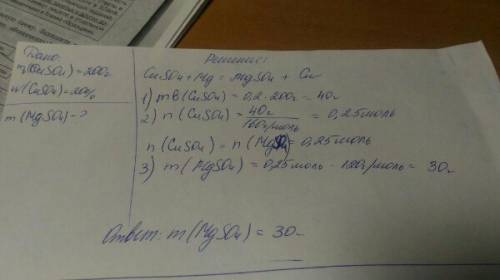 Дано:
m(CuSO4)=200г
w(CuSO4)=20%
m(MgSO4)-?
Решение:
CuSO4+Mg=MgSO4+Cu
1) mв(CuSO4)=0,2·200г=40г
2) n(CuSO4)=40г/160г/моль=0,25моль
n(CuSO4)=n(MgSO4)=0,25моль
3) m(MgSO4)=0,25моль·120г/моль=30г
Ответ: m(MgSO4)=30г